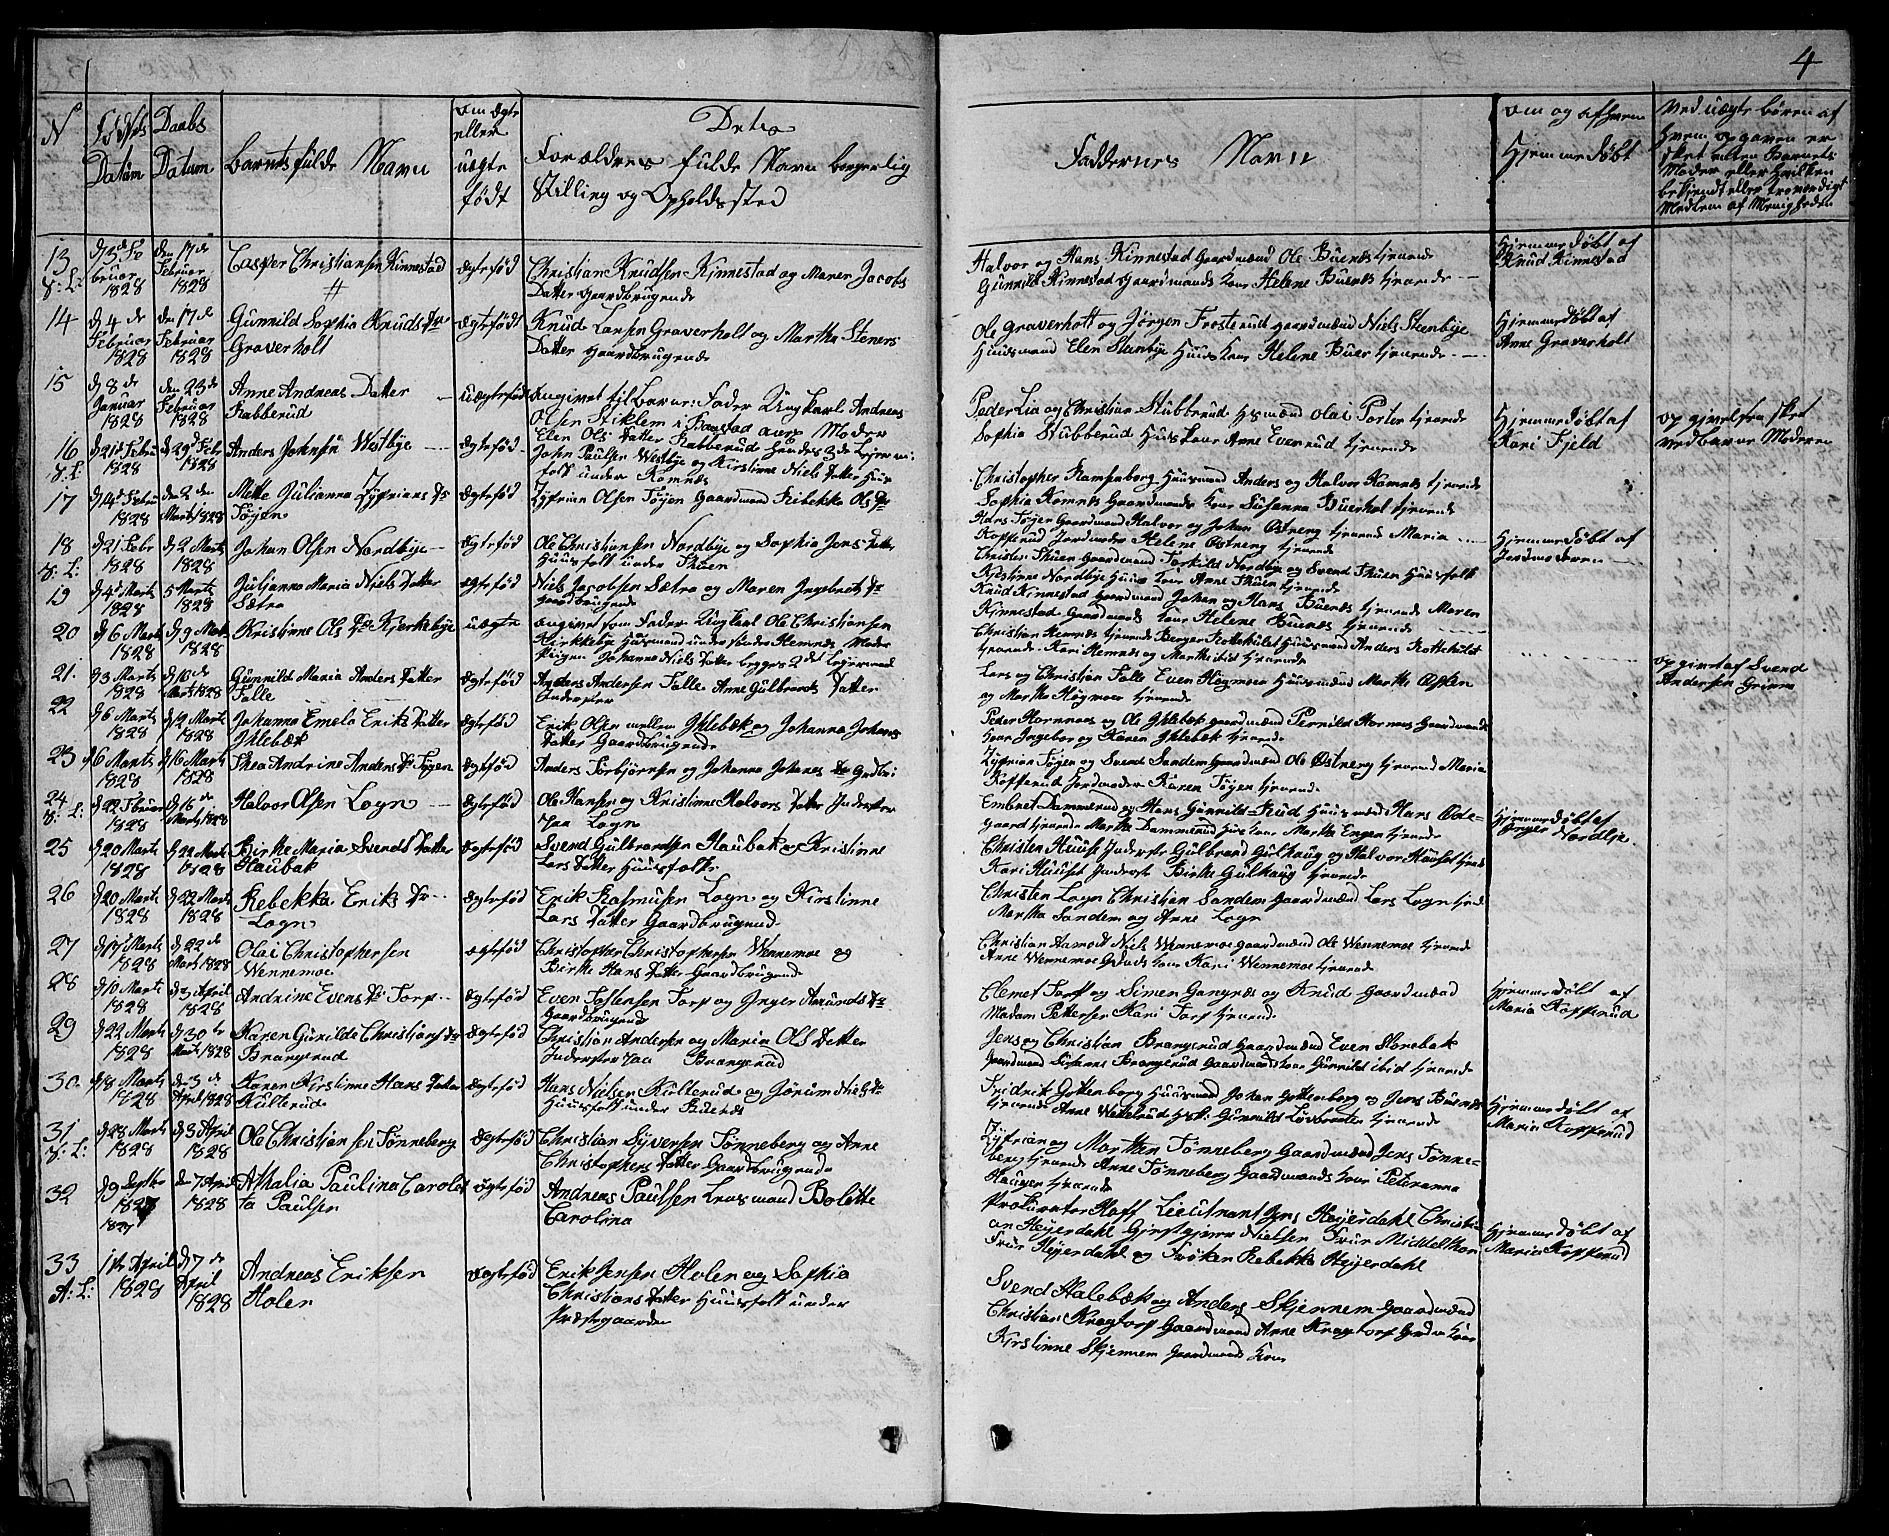 4
N
Fødsels Datum
Daabs Datum
Barnets fulde Navn
om ægte eller uægte født
Deres Forældres fulde Navn borgerlig Stilling og Opholdssted
Faddernes Navn
om og af hvem Hjemmedøbt
13
d 3 de Februar 1828
den 17 de Februar 1828
Casper Christiansen Kinnestad
ægtefød
Christian Knudsen Kinnestad og Maren Jacobs
Datter Gaardbrugende
Halvor og Hans Kinnestad Gaardmænd Ole Buenæs tjenende
Gunnild Kinnestad Gaardmands Kone Helene Buenæs tjenende
Hjemmedøbt af
Knud Kinnestad
14
d 4 de Februar 1828
den 17 de Februar 1828
Gunnild Sophia Knuds Dr
Graverholt
ægtefødt
Knud Larsen Graverholt og Martha Steners
Datter Gaardbrugende
Ole Graverholt og Jørgen Frosterud Gaardmænd Niels Steenbye
Huusmand Elen Stenbye Huus Kone Helene Buer tjenende
Hjemmedøbt af
Anne Graverholt
15
d 8 de Januar 1828
den 23 de Februar 1828
Anne Andreas Datter
Rabberud
uægtefød
Angivet til Barne: Fader Ungkarl Andreas
Olsen Stiklem i Moder
Elen Ols Datter Rabberud hendes 3de Lejermaal
Peder Lia og Christian Stubberud Hsmænd Olai Porter tjenende
Sophia Stubberud Huus Kone Anne Evenrud tjenende
Hjemmedøbt af
Kari Fjeld
opgivelsen sket
ved barne Moderen
16
d 21 de Febru 1828
d 29 de Febr 1828
Anders Johnsen Westbye
ægtefød
John Paulsen Westbye og Kirstinne Niels Datter Huus
folk under Komnæs
Christopher Ramsenborg Huusmand Anders og Halvor Komnæs tjenende
Sophia Komnæs Gaardmands Kone Susanna Buerhol tjenende
17
d 4 de Febru 1828
den 2 den Marts 1828
Mette Julianna Zyfrians Dr
Tøyen
ægtefød
Zyfrian Olsen Tøyen Gaardmand Rebekka Ols Dr
Hans Tøyen Gaardmand Halvor og Johan Østreng tjenende Maria
Kopperud Jordmoder Helene Østreng tjenende
18
d 21 Febr 1828
d 2 Marts 1828
Johan Olsen Nordbye
ægtefød
Ole Christiansen Nordbye og Sophia Jens Datter
Huusfolk under Thuen
Christen Thuen Gaardmand Torkild Nordbye og Svend Thuen Huusfolk
Kirstinne Nordbye Huus Kone Anne Thuen tjenende
Hjemmedøbt af
Jordmoderen
19
d 4 de Marts 1828
5 Marts 1828
Julianna Maria Niels Datter
Sætra
ægtefød
Niels Jacobsen Sætra og Maren Ingebrets Dr
Gaardbrugende
Knud Kinnestad Gaardmand Johan og Hans Buenæs tjenende Maren
Kinnestad Gaardmands Kone Helene Buenæs tjenende
20
d 6 Marts 1828
d 9 Marts 1828
Kristinne Ols Dr Kjerkebye
uægte
angivet som Fader Ungkarl Ole Christiansen
Kirkkebye Huusmand under Søndre Hemnæs Moder
Piigen Johanne Niels Datter begges 2det Lejermaal
Christian Hemnæs tjenende Berger Kottehølet Huusmand Anders Kottehølet
tjenende Kari Hemnæs og Marthe ibid tjenende
21.
d 3 Marts 1828
d 10 de Marts 1828
Gunnild Maria Anders Datter
Falle
ægtefød
Anders Andersen Falle Anne Gulbrands Datter
Inderster
Lars og Christian Falle Even Høgmoe Huusmænd Marthe Opsen
og Martha Høgmoe tjenende
opgivet af Svend
Andersen Grinna
22
d 6 Marts 1828
d 9 Marts 1828
Johanna Emela Eriks Datter
Yklebæk
ægtefød
Erik Olsen mellem Yklebæk og Johanna Johans
Datter Gaardbrugende
Peder Hornnæs og Ole Yklebæk gaardmænd Pernild Hornæs Gaardmands
Kone Ingebor og Karen Yklebæk tjenende
23
d 6 Marts 1828
d 16 Marts 1828
Thea Andrine Anders Dr Tøyen
ægtefød
Anders Torbjørnsen og Johanna Johanes Dr
Zyfrian Tøyen og Svend Sandem Gaardmænd Ole Østreng tjenende Maria
Kopperud Jordmoder Karen Tøyen tjenende
24
d 22 Februar 1828
d 16 de Marts 1828
Halvor Olsen Logn
ægtefød
Ole Hansen og Kristinne Halvors Datter Inderster
paa Logn
Embret Dammerud og Hans Gunnild Rud Huusmænd Hans Øde-
Gaard tjenende Martha Dammerud Huus Kone Martha Engen tjenende
Hjemmedøbt af
Inger Nordbye
25
d 20 Marts 1828
d 22 Marts 1828
Birthe Maria Svends Datter
Haubak
ægtefød
Svend Gulbrandsen Haubak og Kristinne
Lars Datter Huusfolk
Christen Huuse Inderste Gulbrand Gulhaug og Halvor Huuset tjende
Kari Huuset Inderste Birthe Gulhaug tjenende
26
d 20 Marts 1828
d 22 Marts 1828
Rebekka Eriks Dr
Logn
ægtefød
Erik Rasmusen Logn og Kirstinne
Lars Datter Gaardbrugende
Christen Logn Christian Sandem Gaardmænd Lars Logn tjend
Martha Sandem og Anne Logn
27
d 17 Marts 1828
d 22 de Marts 1828
Olai Christophersen
Wennemoe
ægtefød
Christopher Christophersen Wennemoe og
Birthe Hans Datter Gaardbrugende
Christian Aamodt Niels Wennemoe gaardmænd Ole Wennemoe tjenende
Anne Wennemoe Gaards Kone Kari Wennemoe tjenende
28
d 10 Marts 1828
d 3 April 1828
Andrine Evens Dr Torp
ægtefød
Even Tostensen Torp og Inger Amunds Dr
Gaardbrugende
Clemet Torp og Simen Gangnæs og Knud Gaardmænd
Madam Pettersen Kari Torp tjenende
Hjemmedøbt af
Maria Kopperud
29
d 22 Marts 1828
d 30 te Marts 1828
Karen Gunilda Christians Dr
Brangerud
ægtefød
Christian Andersen og Maria Ols Datter
Inderster paa Brangerud
Jens og Christian Brangerud Gaardmænd Even Storebak
Gaardmand Susanne Brangerud Gaardmands Kone Gunnild ibid tjenende
30
d 18 Marts 1828
den 3 de April 1828
Karen Kirstinne Hans Datter
Kulterud
ægtefød
Hans Nielsen Kulterud og Jørum Niels Dr
Huusfolk under Buenæs
Fridrik Gottenborg Huusmand Johan Gottenborg og Jens Buenæs
tjenende Anne Gunnild tjenende
Hjemmedøbt af
Maria Kopperud
31
d 28 Marts 1828
d 3 April 1828
Ole Christiansen Tønneberg
ægtefød
Christian Syversen Tønneberg og Anne
Christophers Datter Gaardbrugende
Zyfrian og Marthen Tønneberg Gaardmænd Jens Tønne-
berg tjenende Anne Tønneberg Gaardmands Kone Peteranna
Haugen tjenende
32
d 9 1827
1827
den 7 April 1828
Athalia Paulina Carolot
ta Paulsen
ægtefød
Andreas Paulsen Lensmand Bolette
Carolina
Prokurator Hoff Lieutnant Jens Heyerdahl Christi-
an Heyerdahl Nielsen Frue Middelthon
Frue Heyerdahl og Frøken Rebekka Heyerdahl
Hjemmedøbt af
Maria Kopperud
33
1te April 1828
d 7 de April 1828
Andreas Eriksen
Holen
ægtefød
Erik Jensen Holen og Sophia
Christians Datter Huusfolk under
Præstegaarden
Svend Halebæk og Anders Skjennem Gaardmænd
Christian Kragtorp Gaardmand Anne Kragtorp Kone
Kirstinne Skjennem Gaardmands Kone